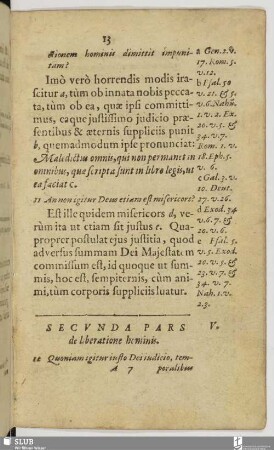 13
ctionem hominis dimittit impuni-
tam?
Imò verò horrendis modis ira-
scitur a, tùm ob innata nobis pecca-
ta, tùm ob ea, quæ ipsi committi-
mus, eaque justissimo judicio præ-
sentibus & æternis suppliciis punit
b, quemadmodum ipse pronunciat:
Maledictus omnis, qui non permanet in
omnibus, quæ scripta sunt in libro legis, ut
ea faciat c.
11 An non igitur Deus etiam est misericors?
Est ille quidem misericors d, ve-
rùm ita ut etiam sit justus e. Qua-
propter postulat ejus justitia, quod
adversus summam Dei Majestatem
commissum est, id quoque ut sum-
mis, hoc est, sempiternis, cùm ani-
mi, tùm corporis suppliciis luatur.
a Gen. 2. v.
17. Rom. 5.
v. 12.
b Psal. 50
v. 21. & 5.
v. 6. Nahũ.
1. v. 2. Ex.
20. v. 5. &
34. v. 7.
Rom. 1. v.
18. Eph. 5.
v. 6.
c Gal. 3. v.
10 Deut.
27. v. 26.
d Exod. 34
v. 6. 7. &
20. v. 6.
e Psal. 5.
v. 5. Exod.
20. v. 5. &
23. v. 7. &
34. v. 7.
Nah. 1. v.
2. 3.
SECVNDA PARS
de liberatione hominis.
V.
12 Quoniam igitur iusto Dei iudicio, tem-
A 7 poralibus
SLUB
Wir führen Wissen.